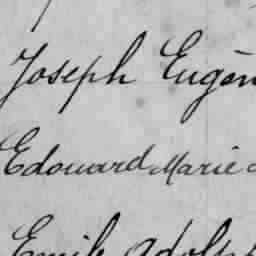 Joseph Eugèn
Edouard Marie
Emile Adolph